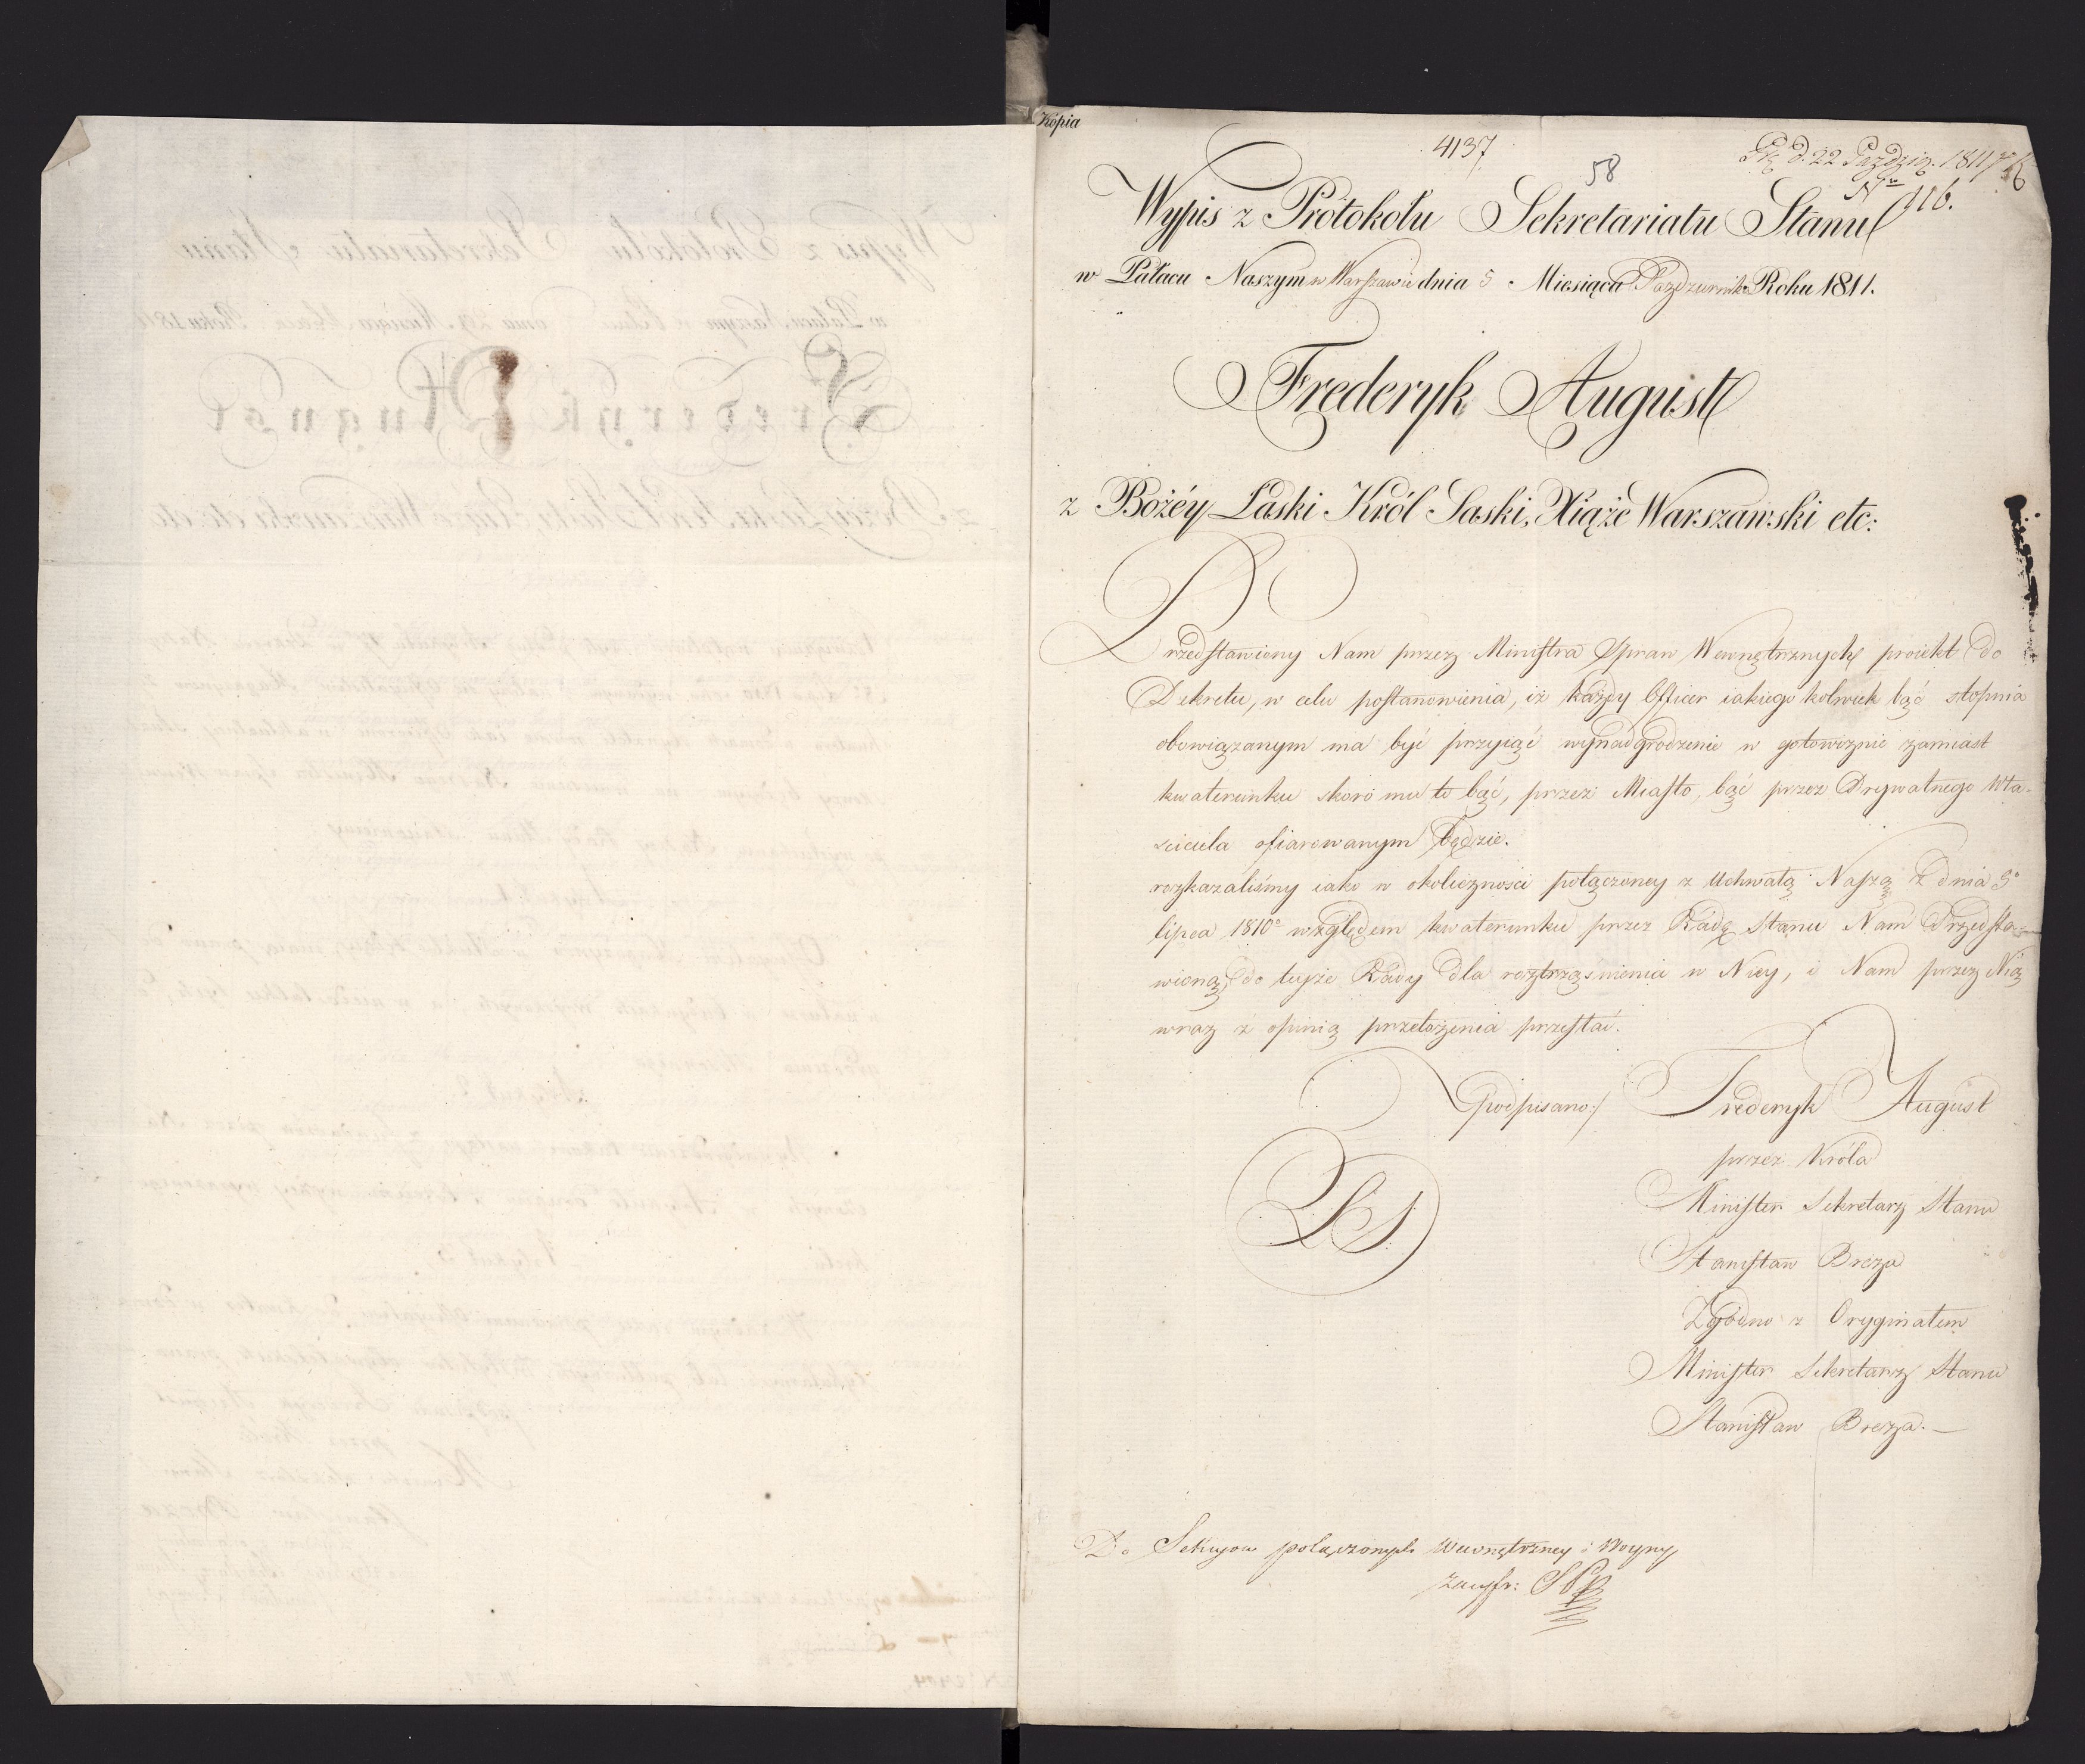 Kopia
4137
58
d. 22 Paździer. 1811
N 916.
Wypis z Protokołu Sekretariatu Stanu
w Pałacu Naszym w Warszawie dnia 5 Miesiąca Pazdziernika Roku 1811.
Frederyk August
z Bożéy Łaski Król Saski, Xiąże Warszawski etc:
Przedstawiony Nam przez Ministra Spraw Wewnętrznych proiekt do
Dekretu, w celu postanowienia, iż każdy Officer iakiego kolwiek bąć stopnia
obowiązanym ma być przyiąć wynadgrodzenie w gotowiznie zamiast
kwaterunku skoro mu to bąć, przez Miasto, bąć przez Prywatnego Wła-
sciciela ofiarowanym będzie.
rozkazaliśmy iako w okoliczności połączoney z Uchwałą Naszą z dnia 5º
lipca 1810º względem kwaterunku przez Radę Stanu Nam Przedsta-
wioną, do teyże Rady dla roztrząśnienia w Niey, i Nam przez Nią
wraz z opinią przełożenia przesłać.
podpisano:/ Frederyk August
przez Króla
Minister Sekretarz Stanu
LS
Stanisław Breza
Zgodno z Oryginałem
Minister Sekretarz Stanu
Stanisław Breza. —
Do Sekcyow połączonych Wewnętrzney i Woyny